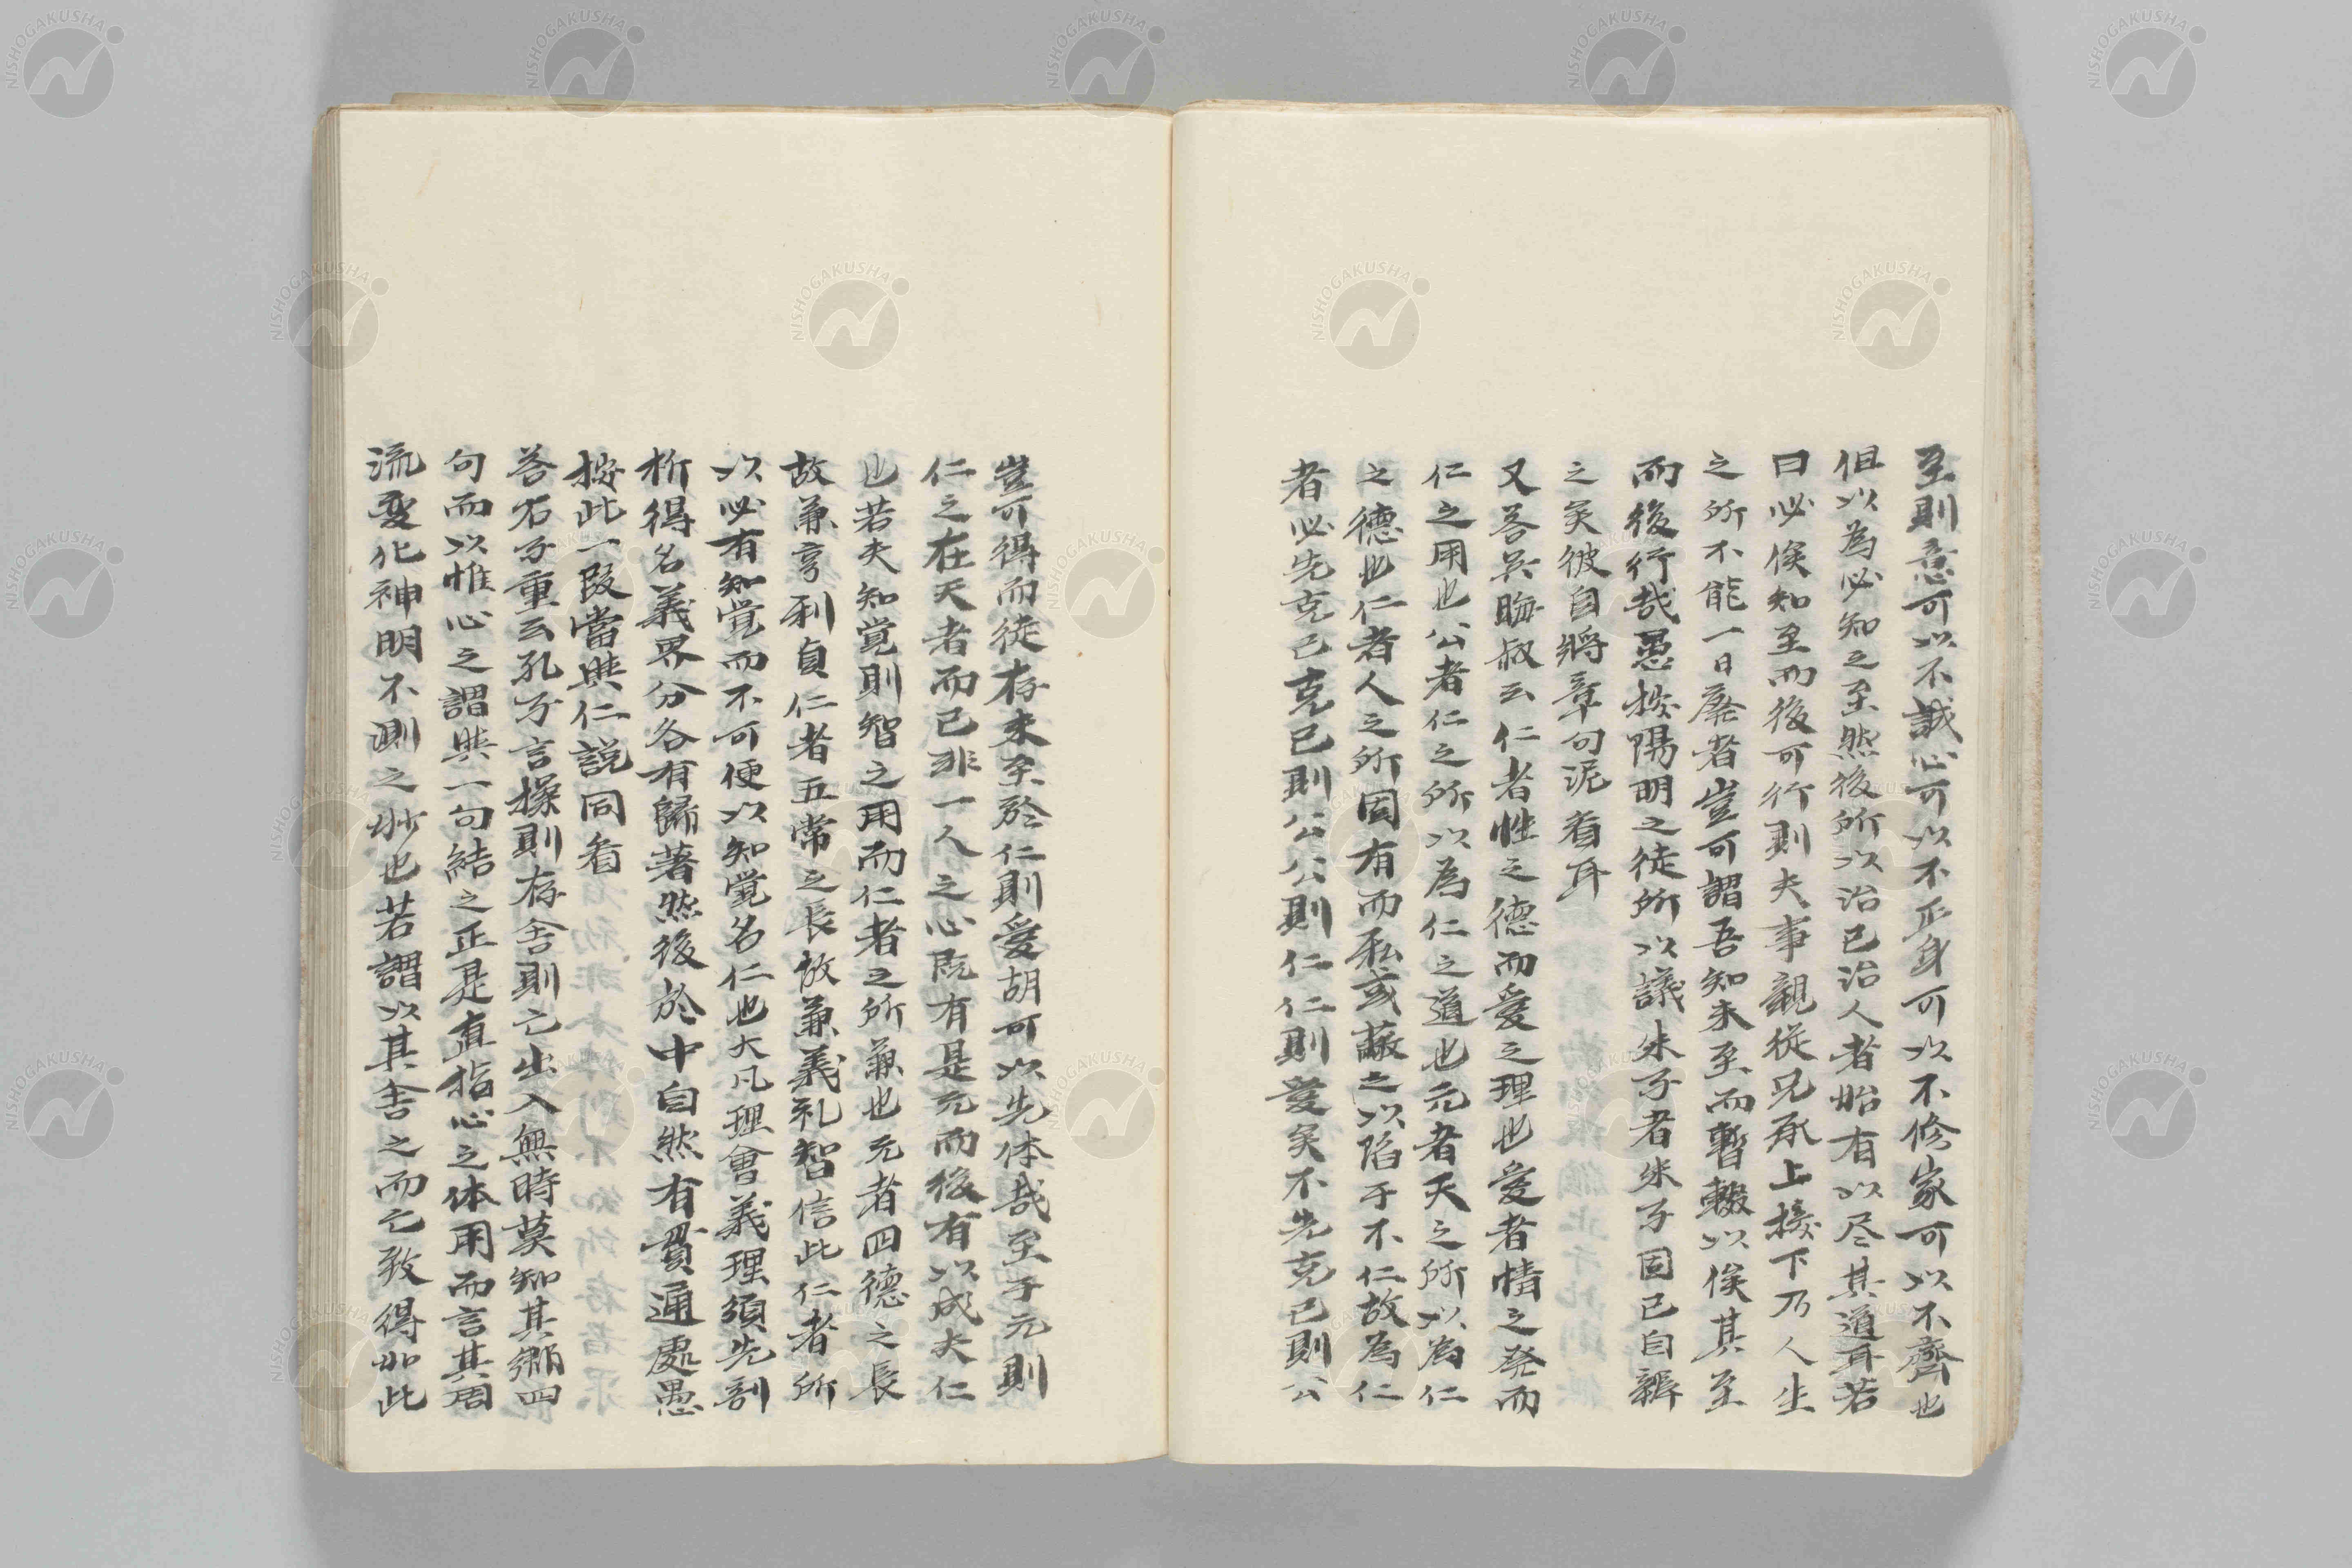 至則意可以不誠心可以不正身可以不修家可以不齊也
但以為必知之至然後所以治已治人者始有以尽其道耳若
曰必俟知至而後可行則夫事親従兄承上接下乃人生
之所不能一日廃者豈可謂吾知未至而暫輟以俟其至
而後行哉愚按陽明之徒所以議朱子者朱子固已自辨
之矣彼自將章句泥着耳
又荅呉晦叔云仁者性之德而愛之理也愛者情之発而
仁之用也公者仁之所以為仁之道也元者天之所以為仁
之德也仁者人之所固有而私或蔽之以陷于不仁故為仁
者必先克己克已則公公則仁仁則愛矣不先克已則公
豈可得而徒存未至於仁則愛胡可以先体哉至于元則
仁之在天者而已非一人之心既有是元而後有以成夫仁
也若夫知覚則智之用而仁者之所兼也元者四德之長
故兼亨利貞仁者五常之長故兼義礼智信此仁者所
以必有知覚而不可便以知覚名仁也大凡理會義理須先剖
析得名義界分各有歸著然後於中自然有貫通處愚
按此一段當與仁説同看
荅石子重云孔子言操則存舎則亡出入無時莫知其鄉四
句而以惟心之謂與一句結之正是直指心之体用而言其周
流変化神明不測之妙也若謂以其舎之而亡致得如此